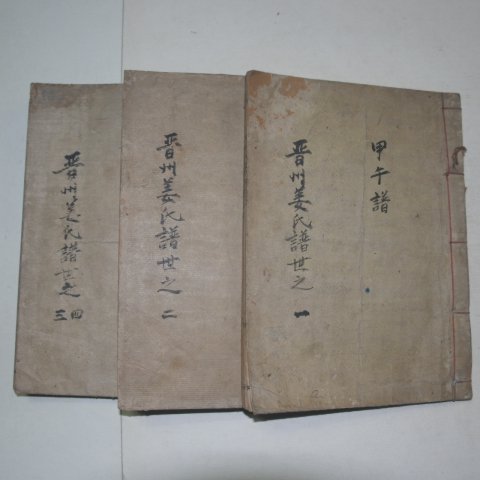 甲午譜
晋州姜氏譜世之 一
晋州姜氏譜世之 二
晋州姜氏譜世之 三四